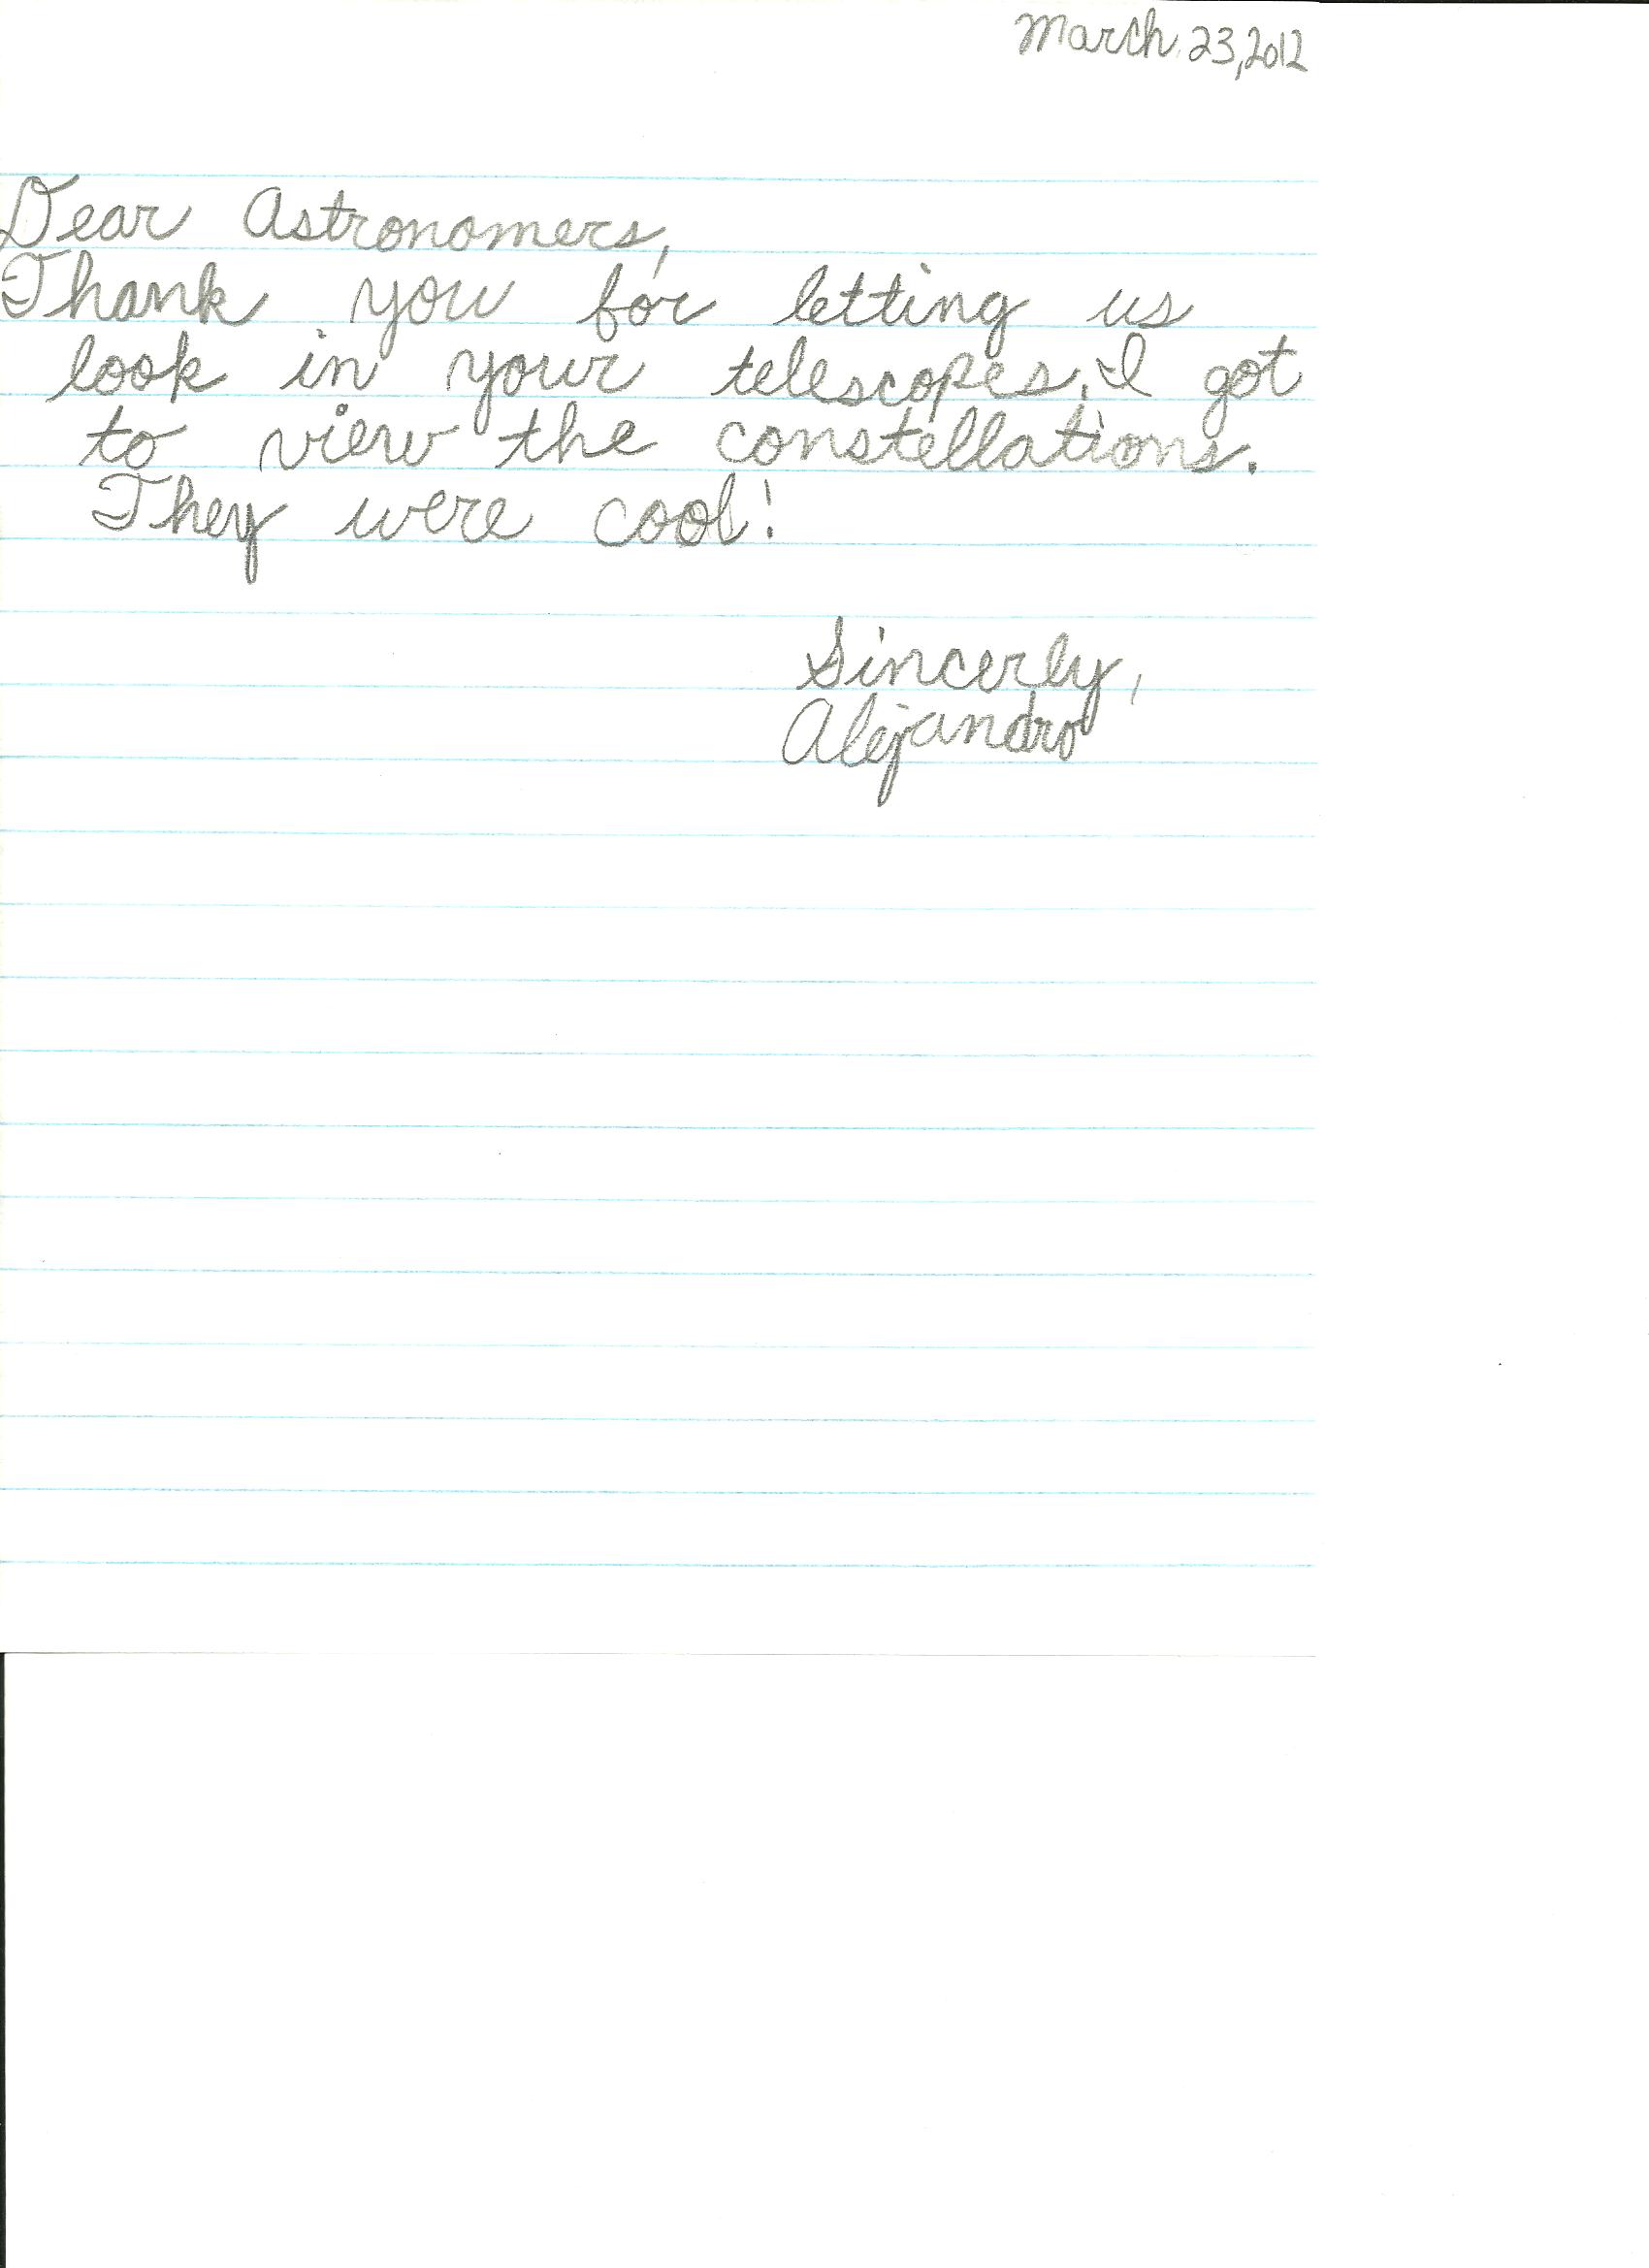 March 23, 2012
Dear Astronomers,
Thank you for letting us
look in your telescopes. I got
to view the constellations.
They were cool!
Sincerly,
Alejandro